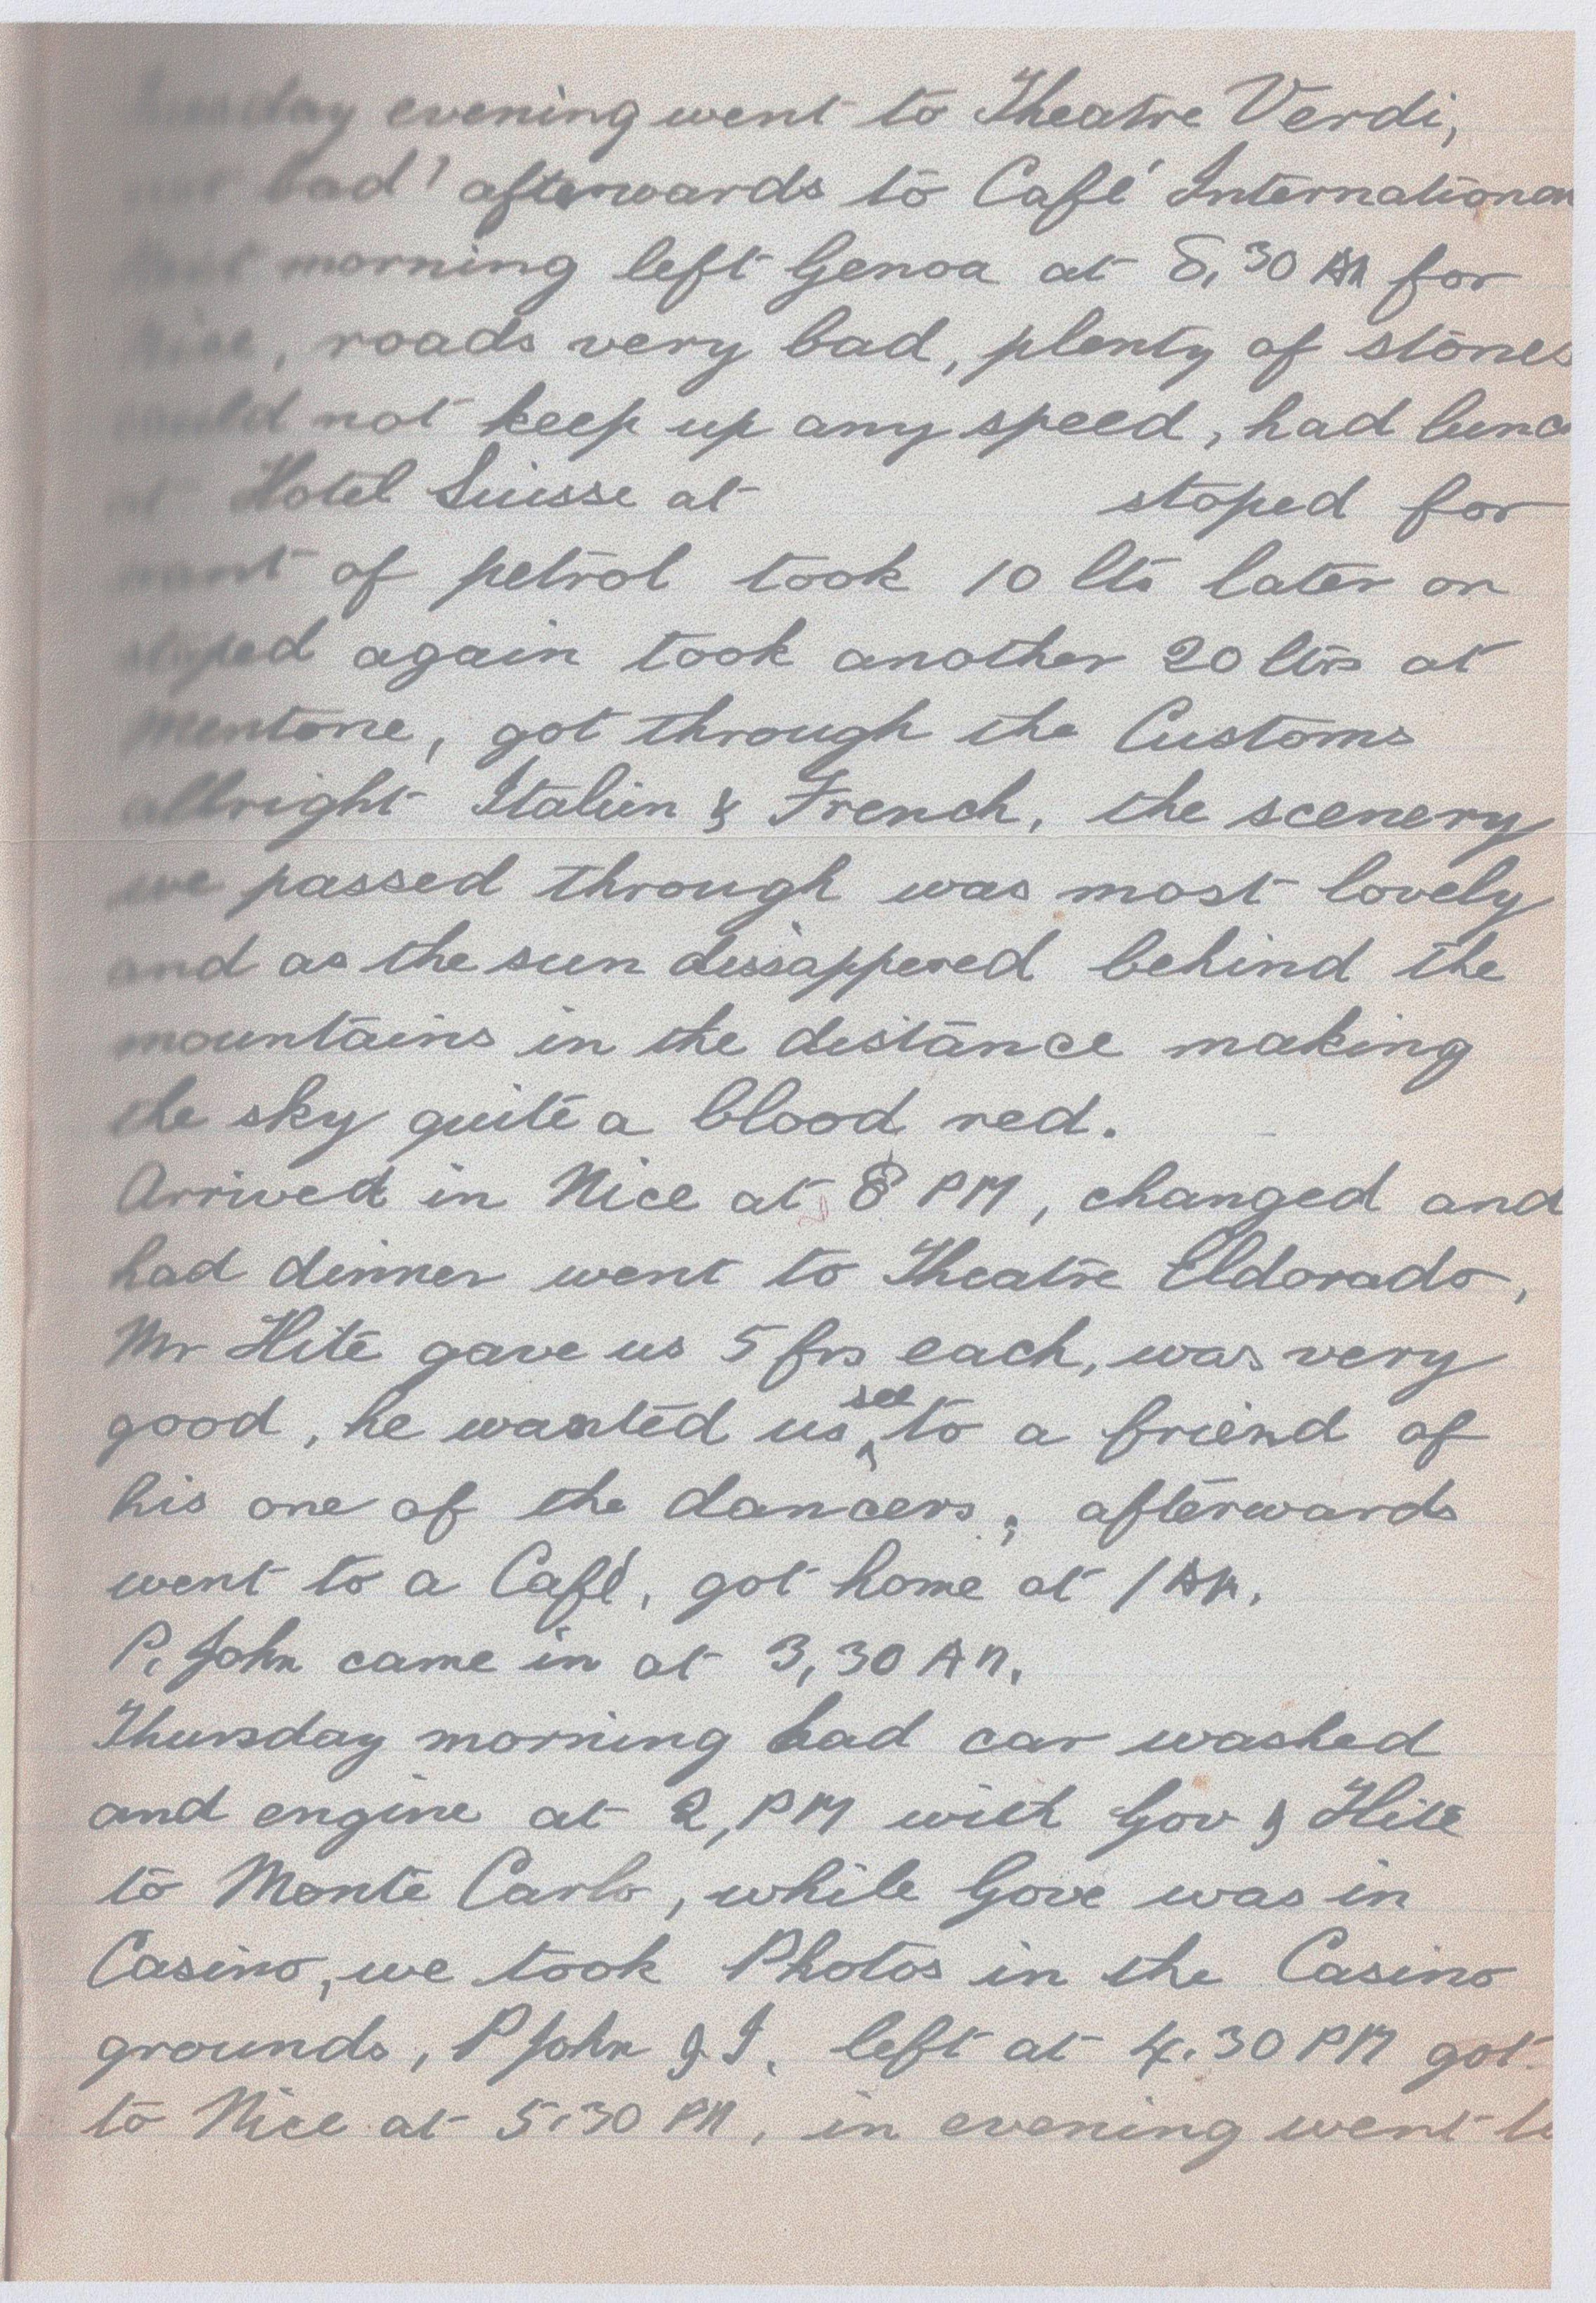 Tuesday evening went to Theatre Verdi,
not bad' afterwards to Café Internationa
Next morning left Genoa at 8,30 AM for
Nice, roads very bad, plenty of stones
could not keep up any speed, had lunc
at Hotel Suisse at stoped for
want of petrol took 10 lts later on
stoped again took another 20 ltrs at
Mentone, got through the Customs
allright Italien & French, the scenery
we passed through was most lovely
and as the sun dissappered behind the
mountains in the distance making
the sky quite a blood red.
Arrived in Nice at 8 PM, changed and
had dinner went to Theatre Eldorado,
Mr Hite gave us 5 frs each, was very
good, he wanted us see to a friend of
his one of the dancers, afterwards
went to a Café, got home at 1 AM.
P. John came in at 3,30 AM.
Thursday morning had car washed
and engine at 2, PM with Gov & Hite
to Monte Carlo, while Gove was in
Casino, we took Photos in the Casino
grounds, P John & I, left at 4.30 PM got
to Nice at 5.30 PM, in evening went to